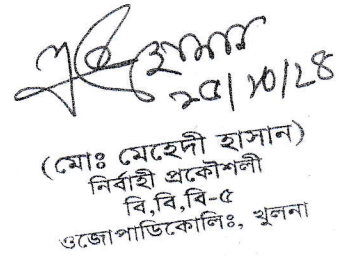 ২৫/১০/২৪
(মোঃ মেহেদী হাসান)
নির্বাহী প্রকৌশলী
বি,বি,বি-৫
ওজোপাডিকোলিঃ, খুলনা